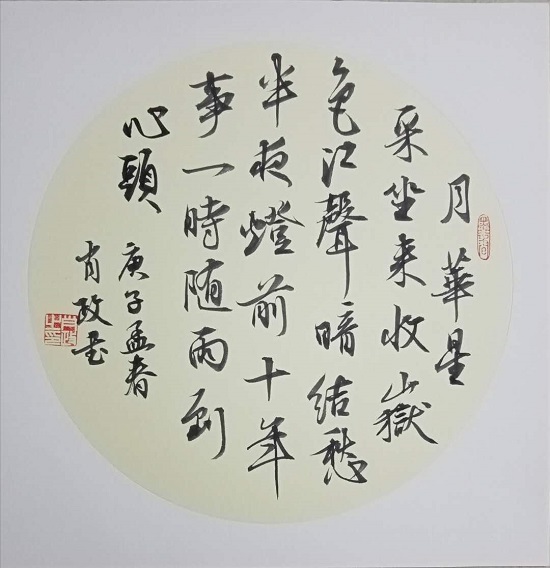 月華星
采坐来收嶽
色江聲暗結愁
半夜燈前十年
事一時随雨到
心頭
庚子孟春
肖政書